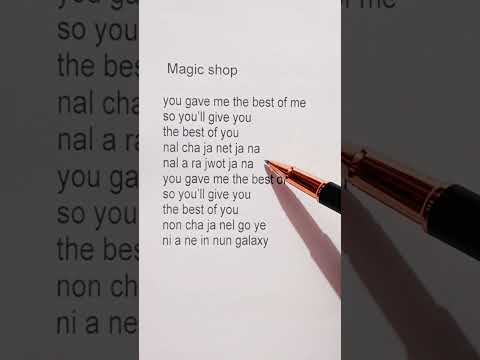 Magic shop
you gave me the best of me
so you'll give you
the best of you
nal cha ja net ja na
nal a ra jwot ja na
you gave me the best of
so you'll give you
the best of you
non cha ja nel go ye
ni a ne in nun galaxy